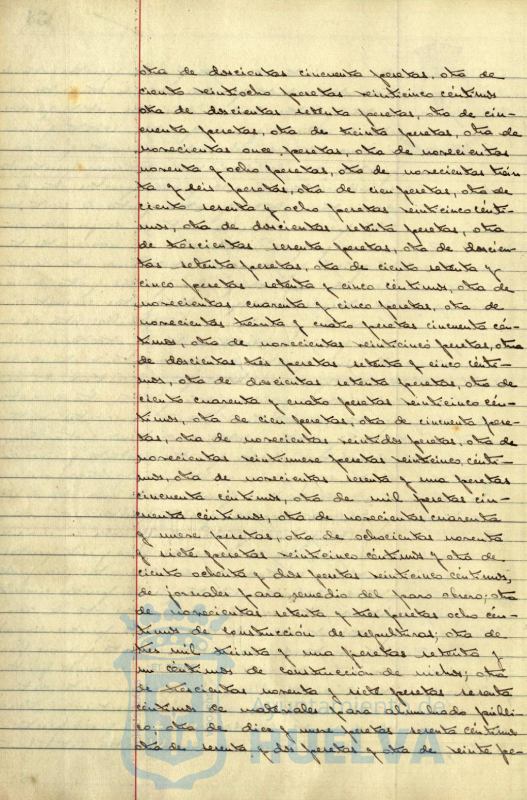 otra de doscientas cincuenta pesetas, otra de
ciento veintiocho pesetas veinticinco céntimos
otra de doscientas setenta pesetas, otra de cin-
cuenta pesetas, otra de treinta pesetas, otra de
novecientas once, pesetas, otra de novecientas
noventa y ocho pesetas, otra de novecientas trein-
ta y seis pesetas, otra de cien pesetas, otra de
ciento sesenta y ocho pesetas veinticinco cénti-
mos, otra de doscientas setenta pesetas, otra
de trescientas sesenta pesetas, otra de doscien-
tas setenta pesetas, otra de ciento setenta y
cinco pesetas setenta y cinco céntimos, otra de
novecientas cuarenta y cinco pesetas, otra de
novecientas treinta y cuatro pesetas cincuenta cén-
timos, otra de novecientas veinticinco pesetas, otra
de doscientas tres pesetas setenta y cinco cénti-
mos, otra de doscientas setenta pesetas, otra de
ciento cuarenta y cuatro pesetas veinticinco cén-
timos, otra de cien pesetas, otra de cincuenta pese-
tas, otra de novecientas veintidos pesetas, otra de
novecientas veintinueve pesetas veinticinco cénti-
mos, otra de novecientas sesenta y una pesetas
cincuenta céntimos, otra de mil pesetas cin-
cuenta céntimos, otra de novecientas cuarenta
y nueve pesetas, otra de ochocientas noventa
y siete pesetas veinticinco céntimos y otra de
ciento ochenta y dos pesetas veinticinco céntimos,
de jornales para remedio del paro obrero; otra
de novecientas setenta y tres pesetas ocho cén-
timos de construcción de sepulturas; otra de
tres mil treinta y una pesetas setenta y
un céntimos de construcción de nichos; otra
de trescientas noventa y siete pesetas sesenta
céntimos de materiales para alumbrado públi-
co; otra de diez y nueve pesetas sesenta céntimos
otra de sesenta y dos pesetas y otra de veinte pe-
Ayuntamiento de
HUELVA